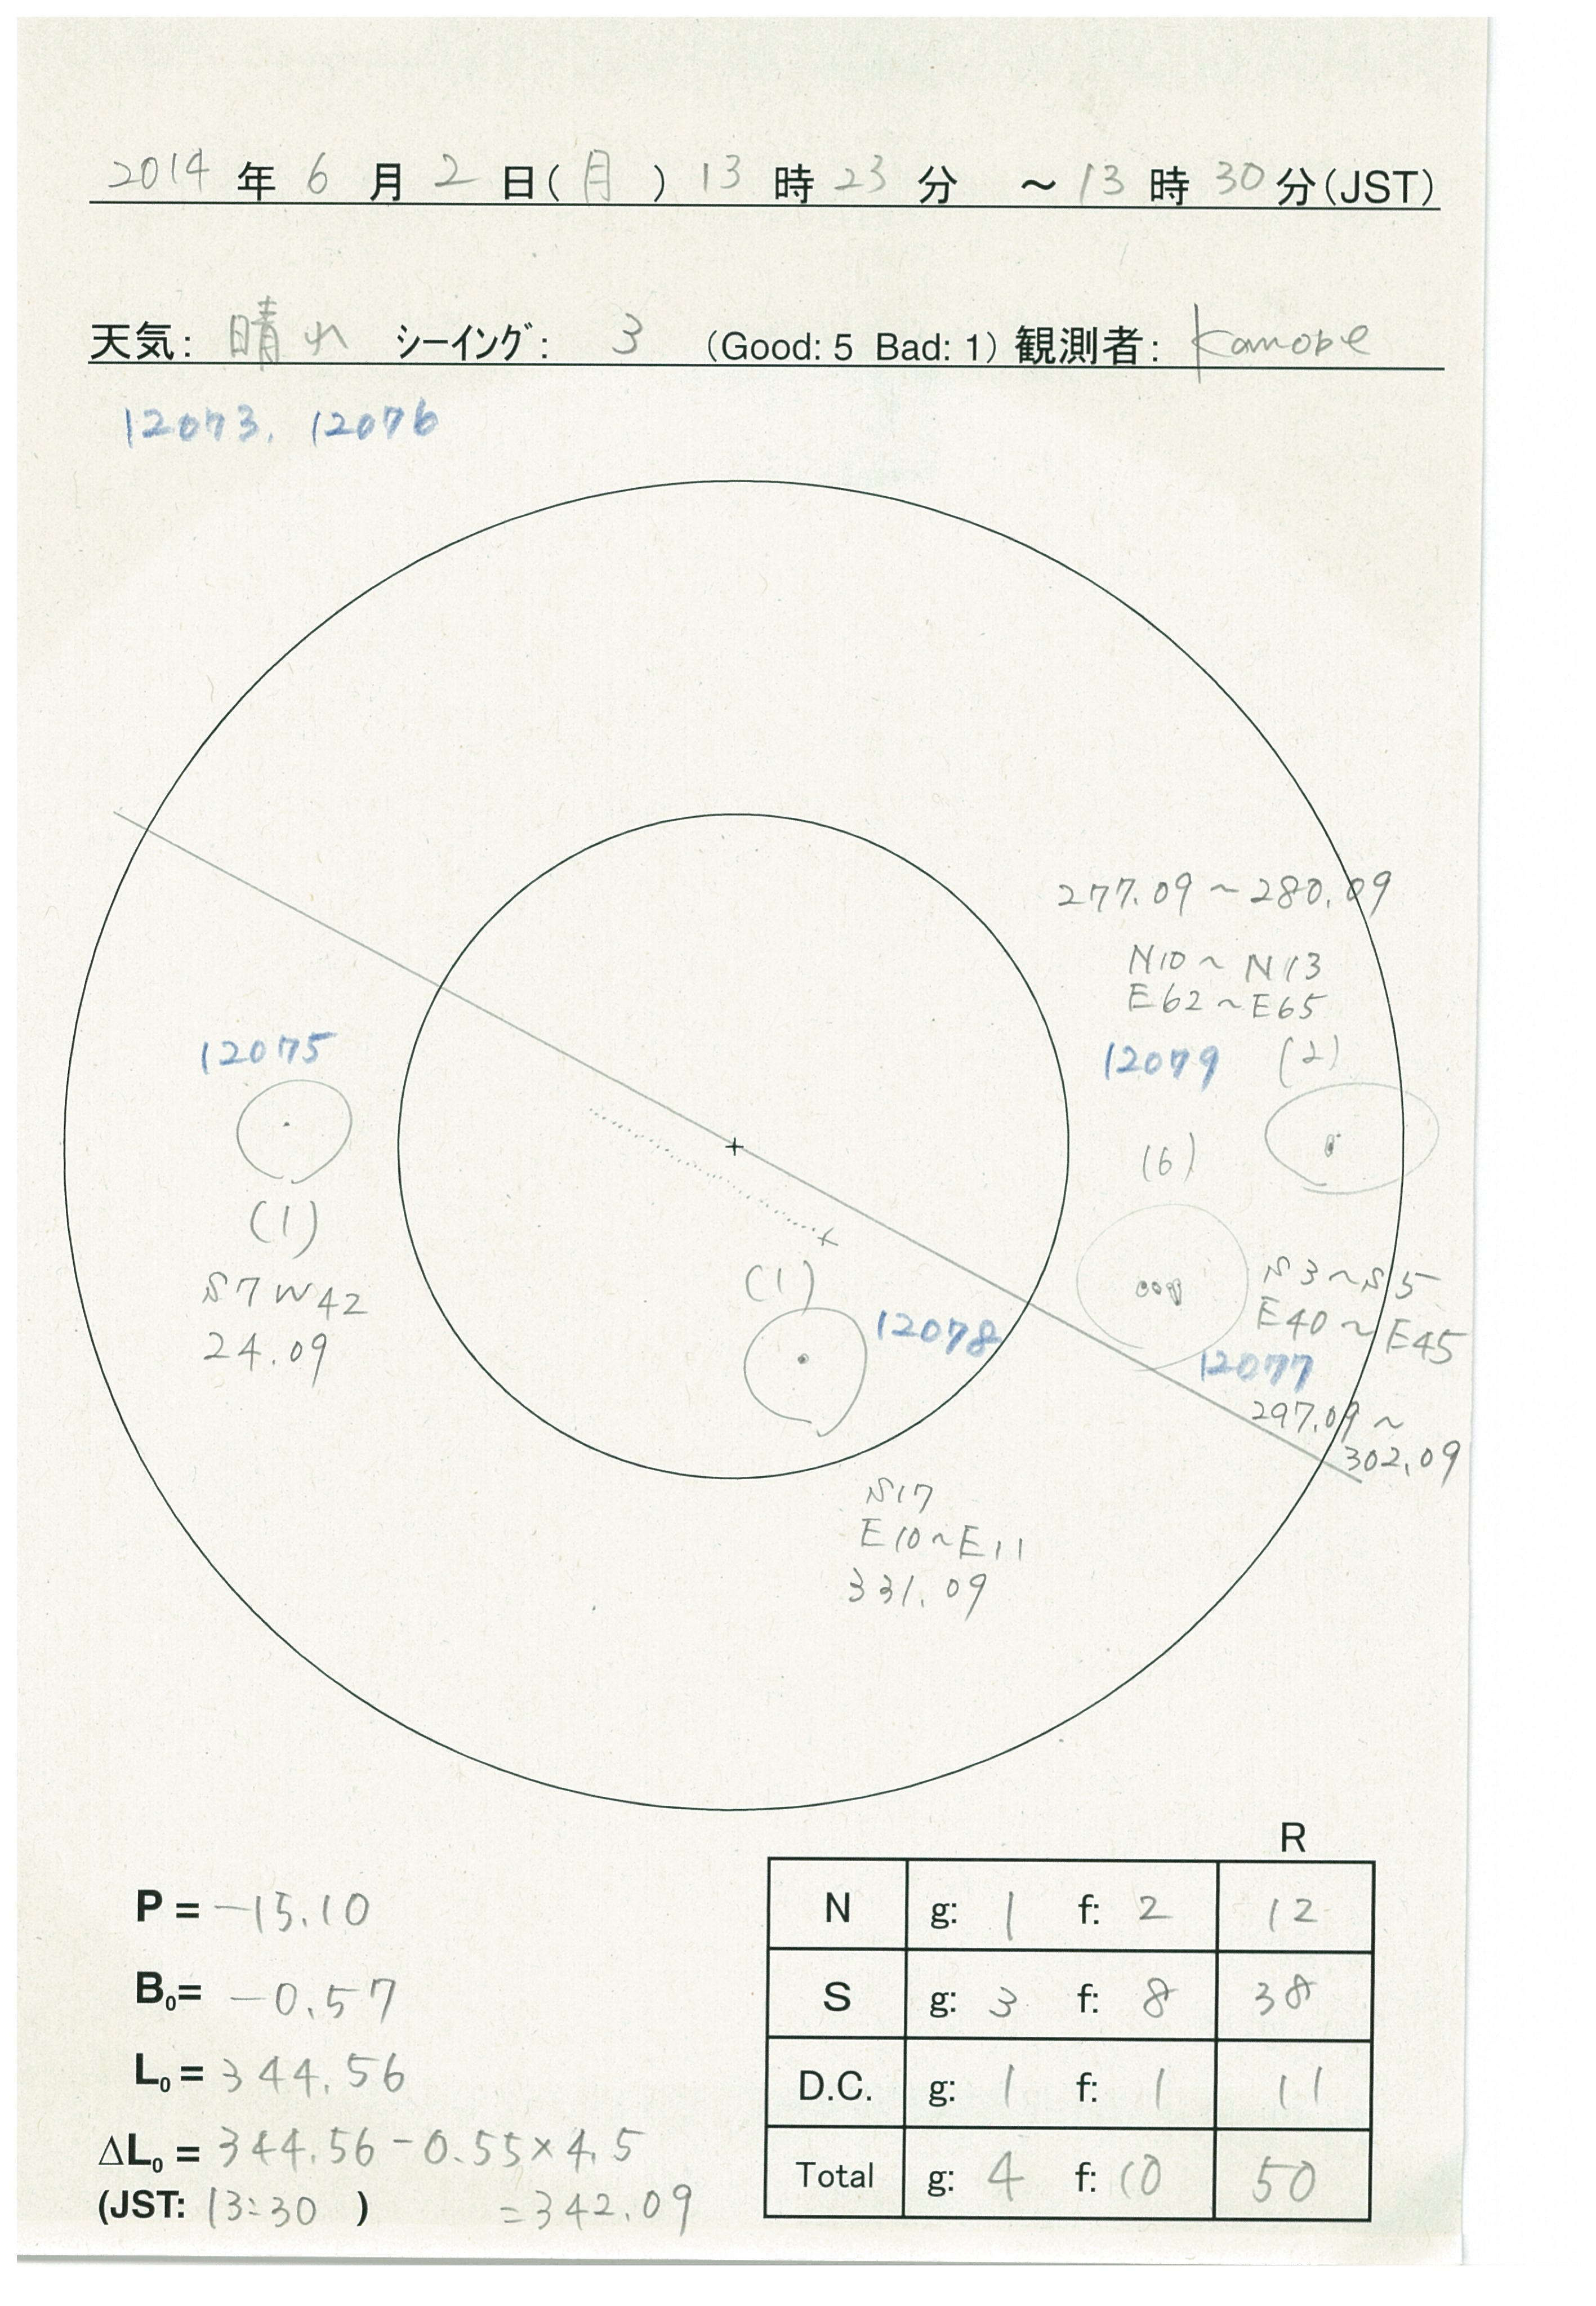 2014 年 6 月 2 日(月) 13 時 23 分 ～ 13 時 30 分(JST)
天気: 晴れ シーイング: 3 (Good: 5 Bad: 1) 観測者: Kamobe
12073. 12076
277.09～280.09
N10～N13
E62～E65
12079 (2)
12075
(1)
S7W42
24.09
(6)
S3～S5
E40～E45
12077
297.09～
302.09
(1)
12078
S17
E10～E11
331.09
P = -15.10
B0= -0.57
L0 = 344.56
ΔL0 = 344.56-0.55×4.5
(JST: 13:30 ) =342.09
R
N g: 1 f: 2 12
S g: 3 f: 8 38
D.C. g: 1 f: 1 11
Total g: 4 f: 10 50